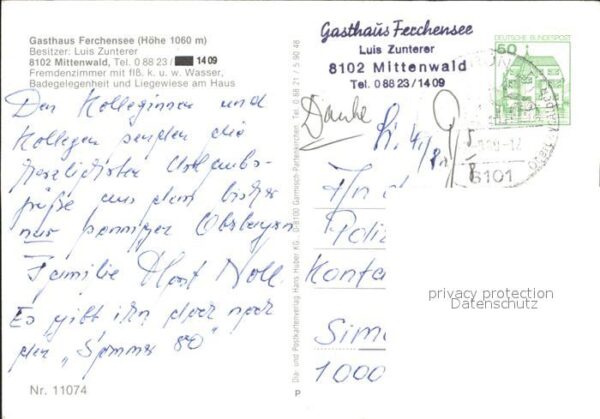 Gasthaus Ferchensee (Höhe 1060 m)
Besitzer: Luis Zunterer
8102 Mittenwald, Tel. 0 88 23 / 14 09
Fremdenzimmer mit flß. k. u. w. Wasser,
Badegelegenheit und Liegewiese am Haus
Den Kolleginnen und
Kollegen senden die
herzlichsten Urlaubs-
grüße aus dem bisher
nur sonnigen Oberbayern
Familie Horst Noll.
Es gibt ihn doch noch
den „Sommer 80"
Nr. 11074
Dia- und Postkartenverlag Hans Huber KG, D-8100 Garmisch-Partenkirchen, Tel. 0 88 21 / 5 90 48
P
Gasthaus Ferchensee
Luis Zunterer
8102 Mittenwald
Tel. 0 88 23/14 09
DEUTSCHE BUNDESPOST
50
6101
Danke
An d
Poliz
Konta
Sim
1000
privacy protection
Datenschutz